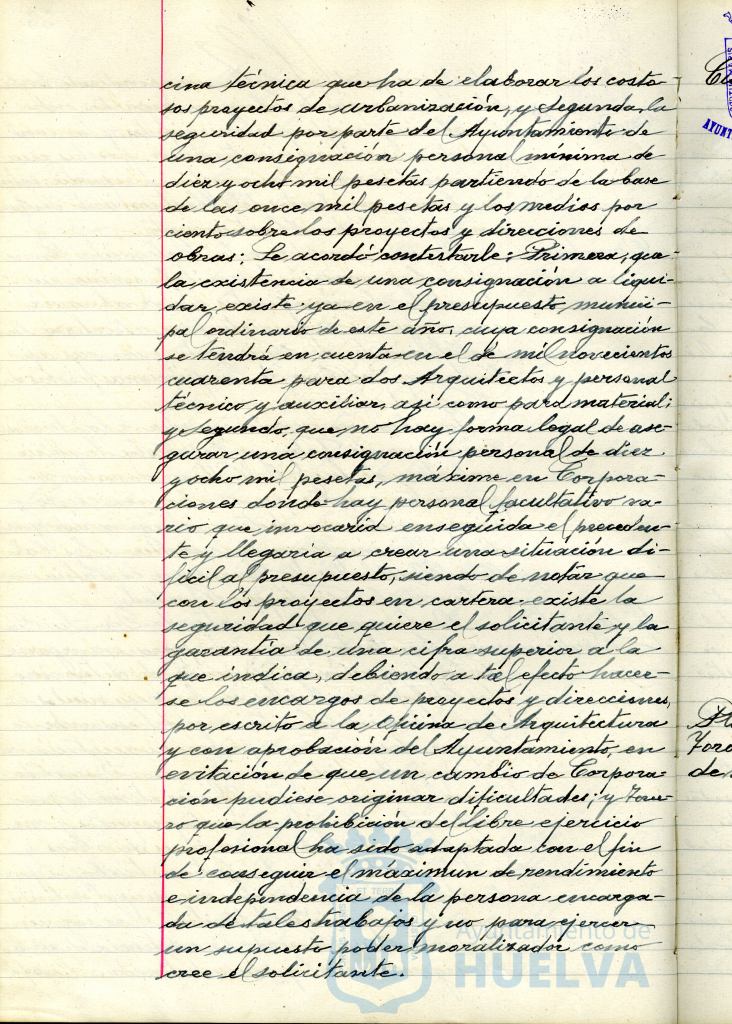 cina técnica que ha de elaborar los costo-
sos proyectos de urbanización, y segunda, la
seguridad por parte del Ayuntamiento de
una consignación personal mínima de
diez y ocho mil pesetas partiendo de la base
de las once mil pesetas y los medios por
ciento sobre los proyectos y direcciones de
obras; Se acordó contestarle: Primera, que
la existencia de una consignación a liqui-
dar existe ya en el presupuesto munici-
pal ordinario de este año, cuya consignación
se tendrá en cuenta en el de mil novecientos
cuarenta para dos Arquitectos y personal
técnico y auxiliar, asi como para material;
y segundo, que no hay forma legal de ase-
gurar una consignación personal de diez
y ocho mil pesetas, máxime en Corpora-
ciones donde hay personal facultativo va-
rio que invocaria enseguida el preceden-
te y llegaria a crear una situación di-
ficil al presupuesto, siendo de notar que
con los proyectos en cartera existe la
seguridad que quiere el solicitante y la
garantía de una cifra superior a la
que indica, debiendo a tal efecto hacer-
se los encargos de proyectos y direcciones,
por escrito a la Oficina de Arquitectura
y con aprobación del Ayuntamiento, en
evitación de que un cambio de Corpora-
ción pudiese originar dificultades; y Terce-
ro que la prohibición del libre ejercicio
profesional ha sido adaptada con el fin
de conseguir el máximun de rendimiento
e independencia de la persona encarga-
da de tales trabajos y no para ejercer
un supuesto poder moralizador como
cree el solicitante.
Ayuntamiento de
HUELVA